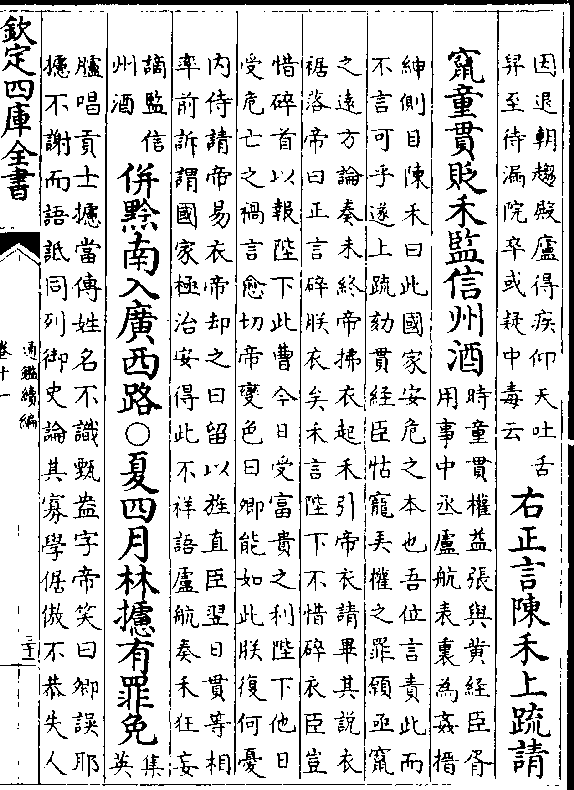 因退朝趨殿廬得疾仰天吐舌
舁至待漏院卒或疑中毒云
右正言陳禾上疏請
竄童貫貶禾監信州酒
時童貫權益張與黄經臣胥
用事中丞盧航表裏為姦搢
紳側目陳禾曰此國家安危之本也吾位言責此而
不言可乎遂上疏劾貫經臣怙寵弄權之罪願亟竄
之遠方論奏未終帝拂衣起禾引帝衣請畢其說衣
裾落帝曰正言碎朕衣矣禾言陛下不惜碎衣臣豈
惜碎首以報陛下此曹今日受富貴之利陛下他日
受危亡之禍言愈切帝變色曰卿能如此朕復何憂
内侍請帝易衣帝却之曰留以旌直臣翌日貫等相
率前訴謂國家極治安得此不祥語盧航奏禾狂妄
謫監信
州酒
併黔南入廣西路○夏四月林攄有罪免
集
英
臚唱貢士攄當傳姓名不識甄盎字帝笑曰卿誤耶
攄不謝而語詆同列御史論其寡學倨傲不恭失人
欽定四庫全書
通鑑續編
卷十一